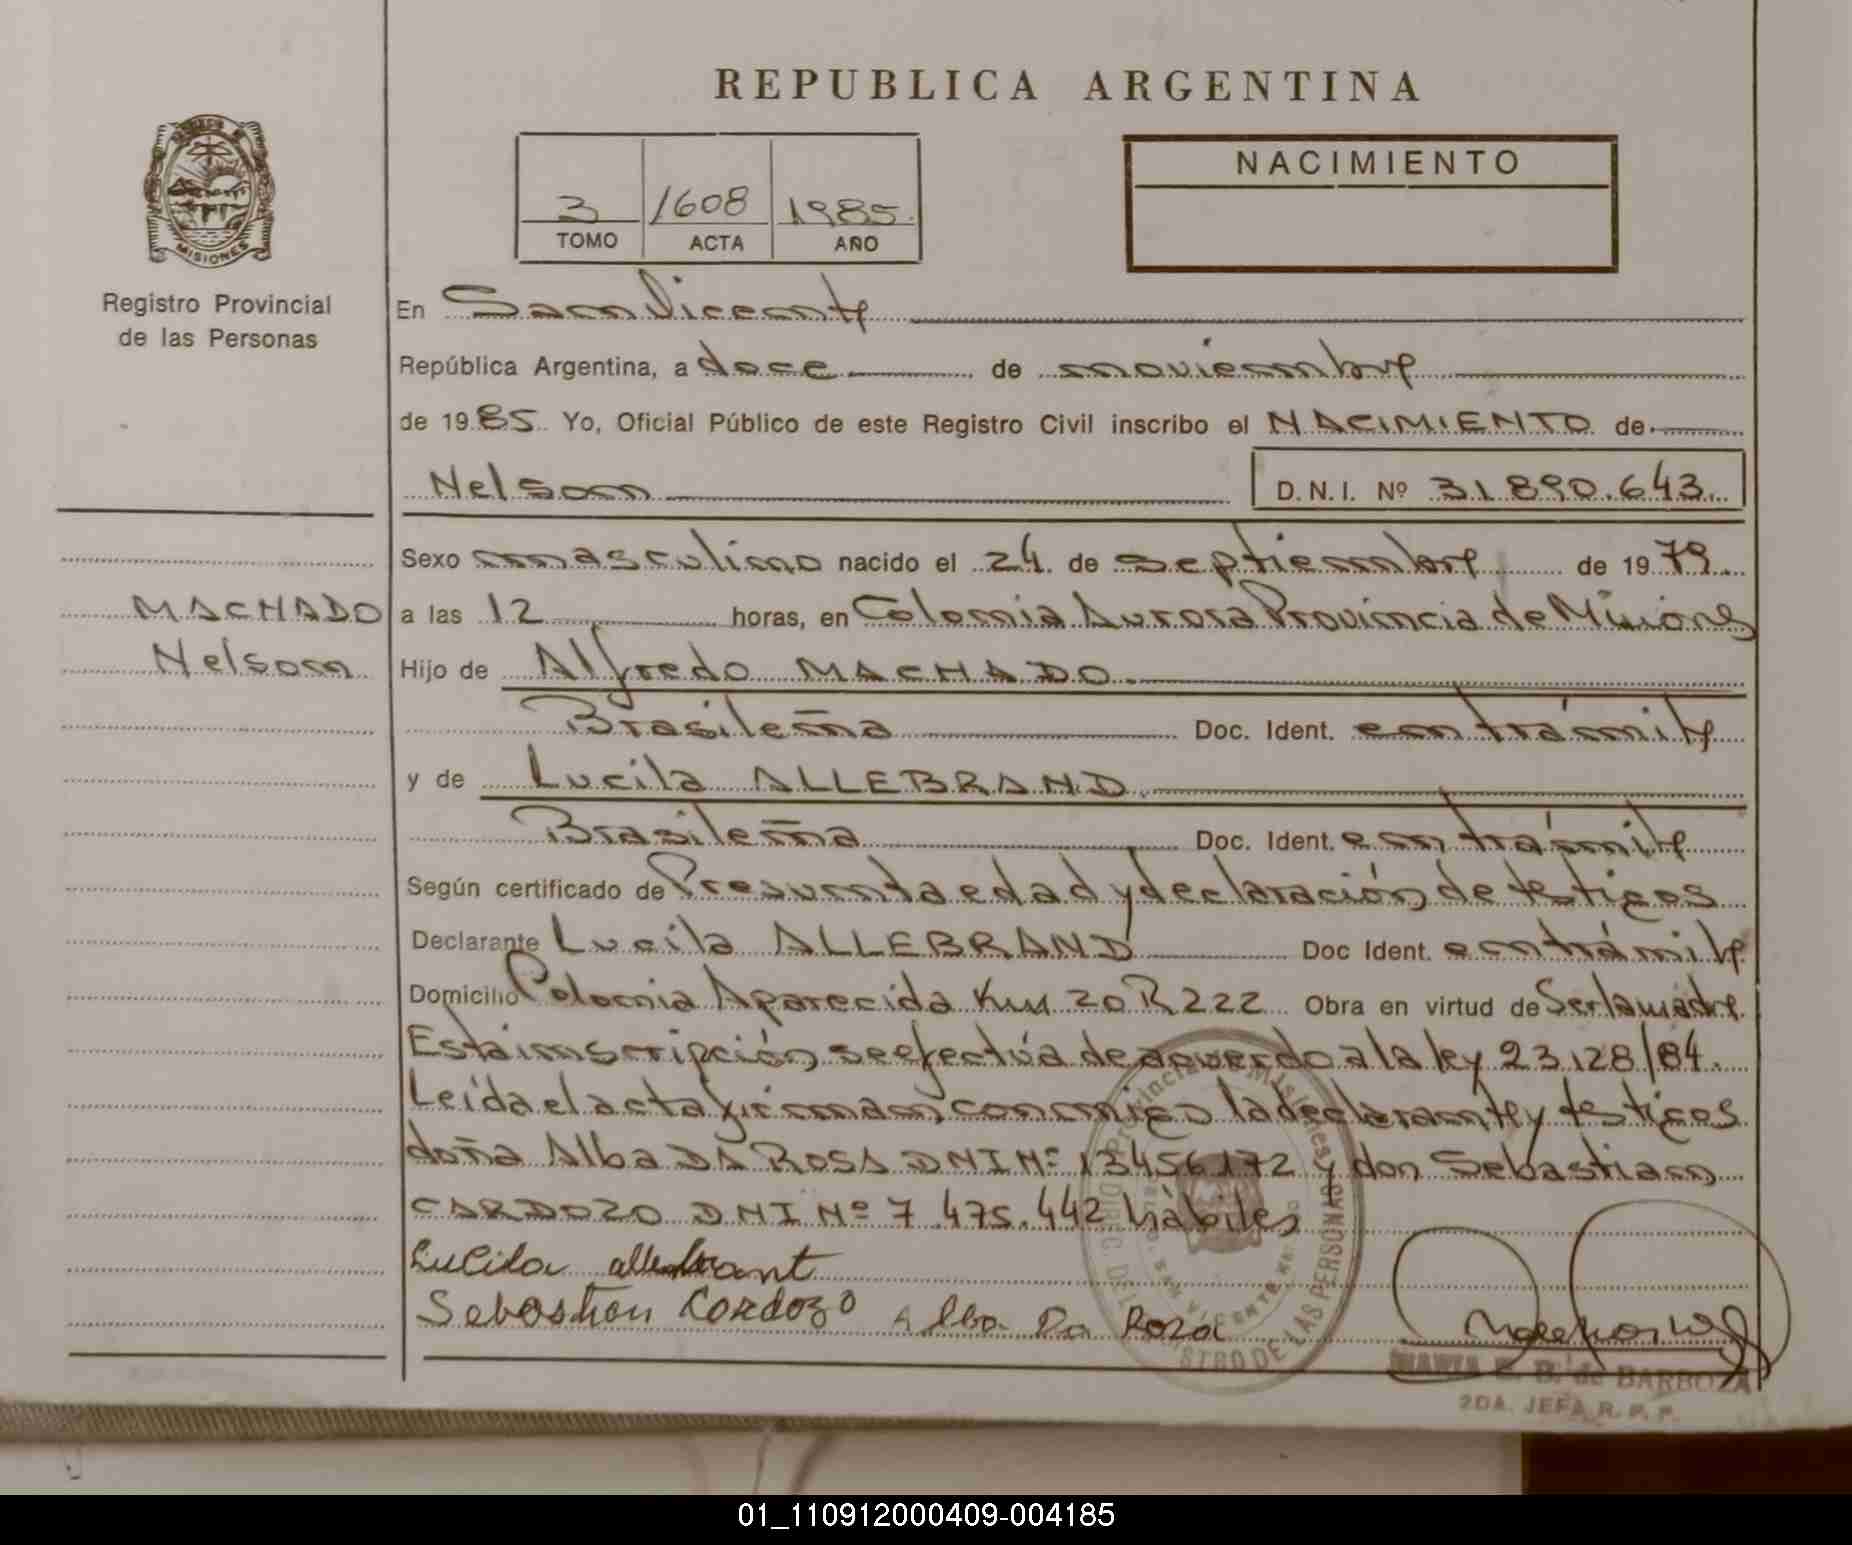 REPUBLICA ARGENTINA
NACIMIENTO
3 1608 1985.
TOMO ACTA AÑO
MISIONES
Registro Provincial
de las Personas
En San Vicente
República Argentina, a doce de noviembre
de 1985 Yo, Oficial Público de este Registro Civil inscribo el NACIMIENTO de
Nelson D.N.I. Nº 31.890.643
Sexo masculino nacido el 24 de septiembre de 1979.
MACHADO
Nelson
a las 12 horas, en Colonia Aurora Provincia de Misiones
Hijo de Alfredo MACHADO.
Brasileña Doc. Ident. en trámite
y de Lucila ALLEBRAND.
Brasileña Doc. Ident. en trámite
Según certificado de Presunta edad y declaración de testigos
Declarante Lucila ALLEBRAND Doc Ident. en trámite
Domicilio Colonia Aparecida Km 20 R 222 Obra en virtud de Ser la madre.
Esta inscripción se efectúa de acuerdo a la ley 23.128/84.
Leída el acta firman conmigo la declarante y testigos
doña Alba DA ROSA DNI Nº 13456172 y don Sebastian
CARDOZO DNI Nº 7.475.442 hábiles
Lucila allebrant
Sebastian Cardozo Alba Da Roza
Provincia de Misiones
DIREC. DEL REGISTRO DE LAS PERSONAS
SAN VICENTE
MARIA E. B. de BARBOZA
2DA. JEFA R. P. P.
01_110912000409-004185